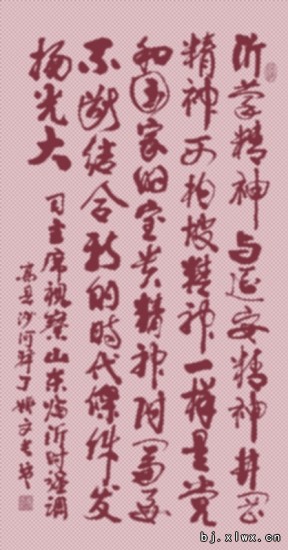 沂蒙精神与延安精神井冈
精神西柏坡精神一样是党
和国家的宝贵精神财富要
不断结合新的时代条件发
扬光大
习主席视察山东临沂时强调
沙河
bj.xlwx.cn